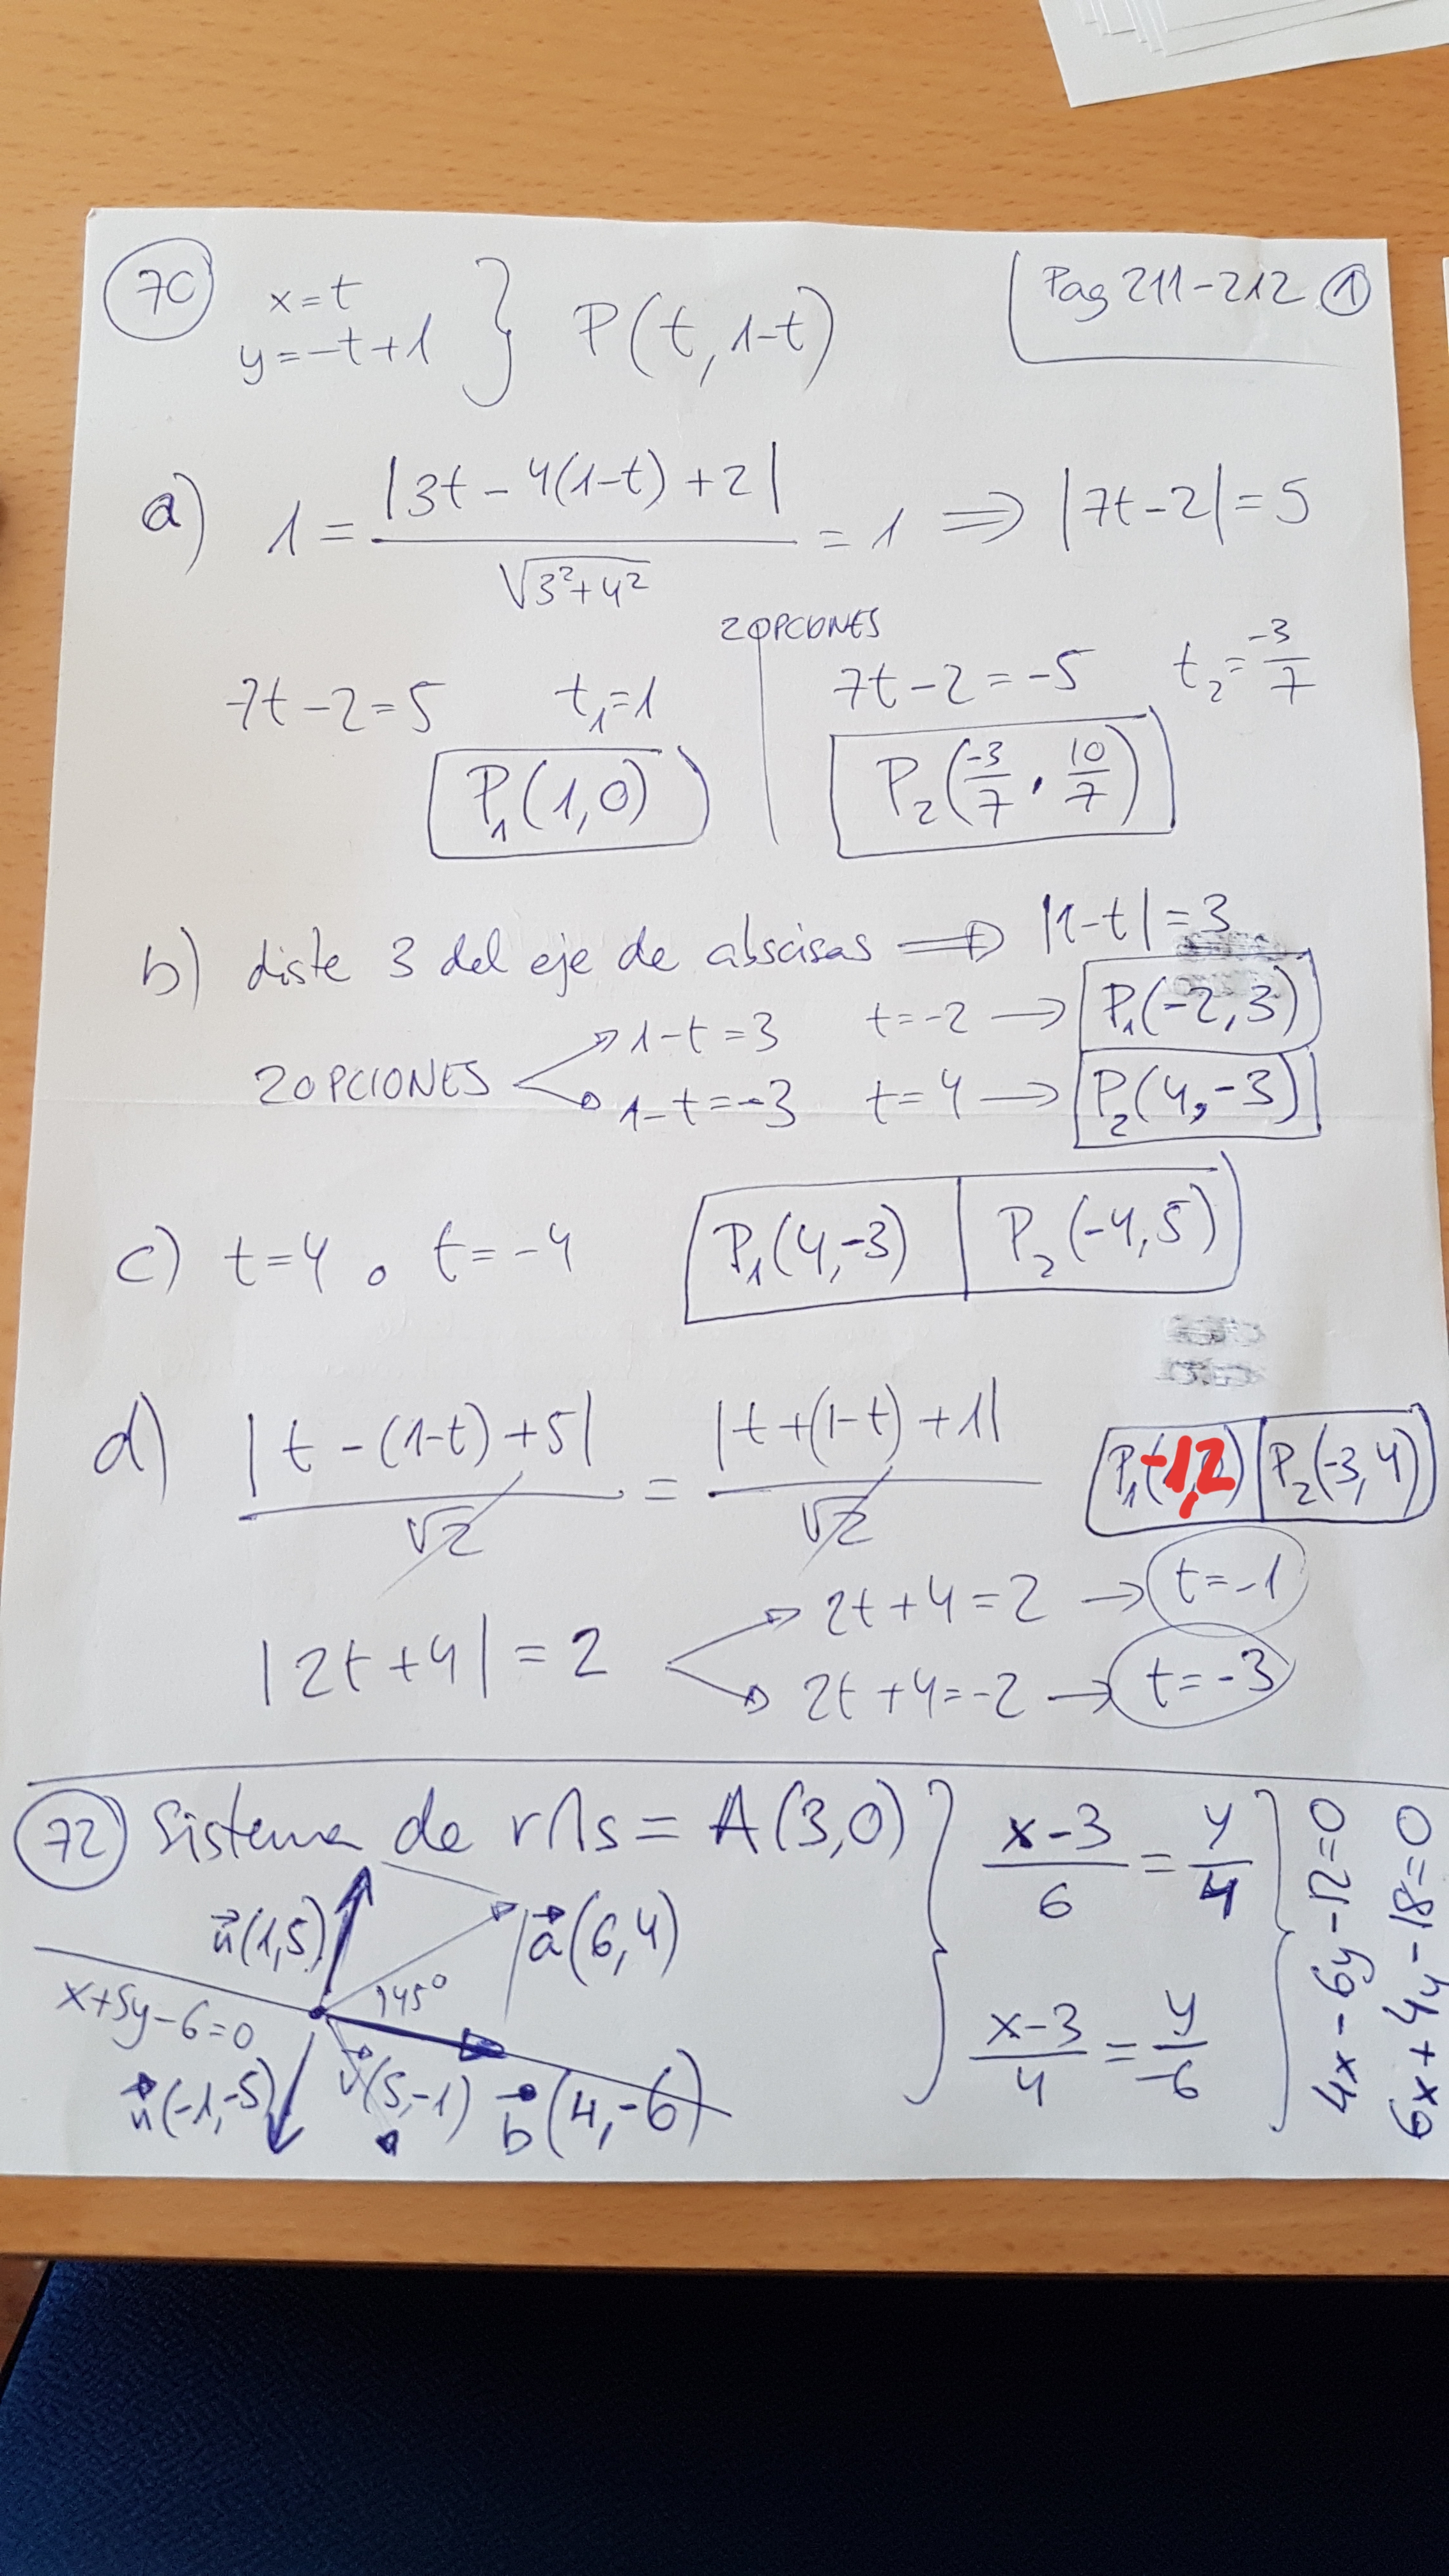 70 x=t
y=-t+1 } P(t,1-t)
Pag 211-212 ①
a) 1 = |3t-4(1-t)+2| / √3²+4² = 1 ⇒ |7t-2|=5
2 OPCIONES
7t-2=5 t₁=1
P₁(1,0)
7t-2=-5 t₂=-3/7
P₂(-3/7, 10/7)
b) diste 3 del eje de abscisas ⇒ |1-t|=3
2 OPCIONES
1-t=3 t=-2 → P₁(-2,3)
1-t=-3 t=4 → P₂(4,-3)
c) t=4 o t=-4 P₁(4,-3) P₂(-4,5)
d) |t-(1-t)+5| / √2 = |t+(1-t)+1| / √2
P₁(-1,2) P₂(-3,4)
|2t+4|=2
2t+4=2 → t=-1
2t+4=-2 → t=-3
72 Sistema de r∩s = A(3,0)
n(1,5)
a(6,4)
45°
x+5y-6=0
n(-1,-5)
v(5,-1)
b(4,-6)
x-3/6 = y/4
x-3/4 = y/-6
4x-6y-12=0
6x+4y-18=0